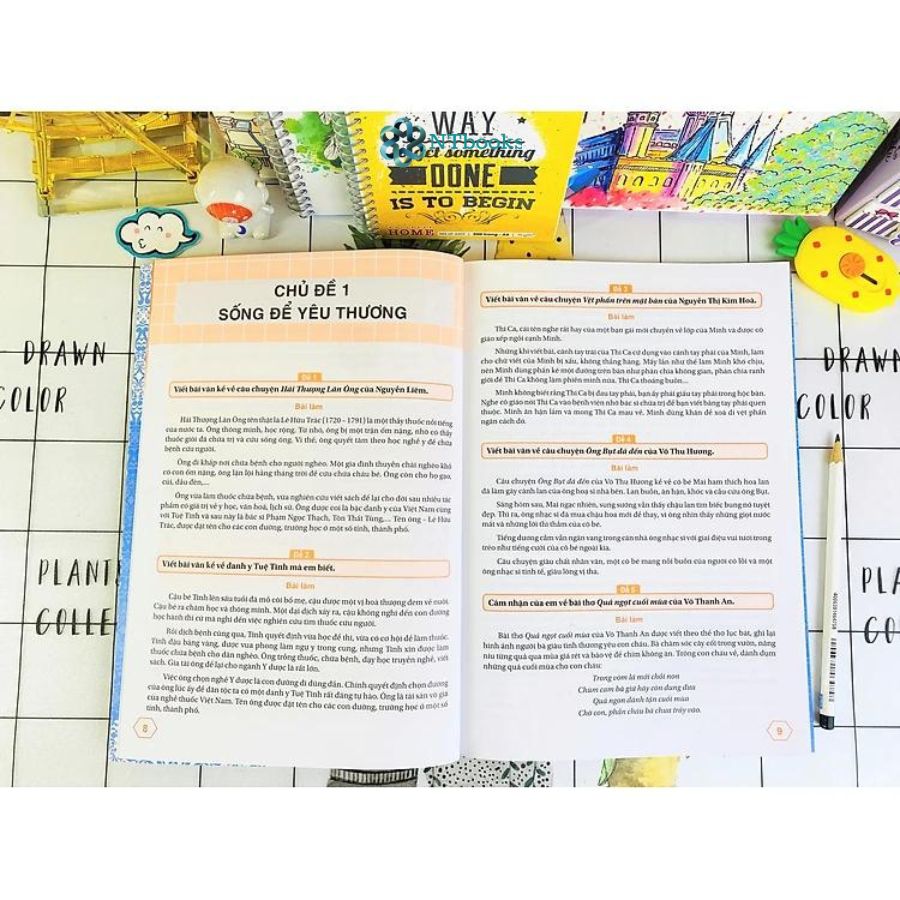 NTbooks
WAY
something
DONE
IS TO BEGIN
HOME
DRAWN
COLOR
PLANT
COLLE
CHỦ ĐỀ 1
SỐNG ĐỂ YÊU THƯƠNG
Đề 1
Viết bài văn kể về câu chuyện Hải Thượng Lãn Ông của Nguyễn Liêm.
Bài làm
Hải Thượng Lãn Ông tên thật là Lê Hữu Trác (1720 – 1791) là một thầy thuốc nổi tiếng
của nước ta. Ông thông minh, học rộng. Từ nhỏ, ông bị một trận ốm nặng, nhờ có thầy
thuốc giỏi đã chữa trị và cứu sống ông. Vì thế, ông quyết tâm theo học nghề y để chữa
bệnh cứu người.
Ông đi khắp nơi chữa bệnh cho người nghèo. Một gia đình thuyền chài nghèo khổ
có con ốm nặng, ông lặn lội hàng tháng trời để cứu chữa cháu bé. Ông còn cho họ gạo,
củi, dầu đèn,...
Ông vừa làm thuốc chữa bệnh, vừa nghiên cứu viết sách để lại cho đời sau nhiều tác
phẩm có giá trị về y học, văn hoá, lịch sử. Ông được coi là bậc danh y của Việt Nam cùng
với Tuệ Tĩnh và sau này là bác sĩ Phạm Ngọc Thạch, Tôn Thất Tùng,... Tên ông – Lê Hữu
Trác, được đặt tên cho các con đường, trường học ở một số tỉnh, thành phố.
Đề 2
Viết bài văn kể về danh y Tuệ Tĩnh mà em biết.
Bài làm
Cậu bé Tĩnh lên sáu tuổi đã mồ côi bố mẹ, cậu được một vị hoà thượng đem về nuôi.
Cậu bé ra chăm học và thông minh. Một đại dịch xảy ra, cậu không nghĩ đến con đường
học hành thi cử mà nghĩ đến việc nghiên cứu tìm thuốc cứu người.
Rồi dịch bệnh cũng qua, Tĩnh quyết định vừa học để thi, vừa có cơ hội để làm thuốc.
Tĩnh đậu bảng vàng, được vua phong làm ngự y trong cung, nhưng Tĩnh xin được làm
thuốc chữa bệnh cho dân nghèo. Ông trồng thuốc, chữa bệnh, dạy học truyền nghề, viết
sách. Gia tài ông để lại cho ngành Y được là rất lớn.
Việc ông chọn nghề Y được là con đường đi đúng đắn. Chính quyết định chọn đường
của ông lúc ấy để dân tộc ta có một danh y Tuệ Tĩnh rất đáng tự hào. Ông là tài sản vô giá
của nghề thuốc Việt Nam. Tên ông được đặt tên cho các con đường, trường học ở một số
tỉnh, thành phố.
8
Đề 3
Viết bài văn về câu chuyện Vệt phấn trên mặt bàn của Nguyễn Thị Kim Hoà.
Bài làm
Thi Ca, cái tên nghe rất hay của một bạn gái mới chuyển về lớp của Minh và được cô
giáo xếp ngồi cạnh Minh.
Những khi viết bài, cánh tay trái của Thi Ca cứ đụng vào cánh tay phải của Minh, làm
cho chữ viết của Minh bị xấu, không thẳng hàng. Mấy lần như thế làm Minh khó chịu,
nên Minh dùng phấn kẻ một đường trên bàn như phân chia không gian, phân chia ranh
giới để Thi Ca không làm phiền mình nữa. Thi Ca thoáng buồn...
Minh không biết rằng Thi Ca bị đau tay phải, bạn ấy phải giấu tay phải trong hộc bàn.
Nghe cô giáo nói Thi Ca vào bệnh viện nhờ bác sĩ chữa trị để bạn viết bằng tay phải quen
thuộc. Minh ân hận lắm và mong Thi Ca mau về. Minh dùng khăn để xoá đi vệt phấn
ngăn cách đó.
Đề 4
Viết bài văn về câu chuyện Ông Bụt đã đến của Võ Thu Hương.
Bài làm
Câu chuyện Ông Bụt đã đến của Võ Thu Hương kể về cô bé Mai ham thích hoa lan
đã làm gãy cành lan của ông hoạ sĩ nhà bên. Lan buồn, ân hận, khóc và cầu cứu ông Bụt.
Sáng hôm sau, Mai ngạc nhiên, sung sướng vẫn thấy chậu lan tím biếc bung nở tuyệt
đẹp. Thì ra, ông nhạc sĩ đã mua chậu hoa mới để thay, vì ông nhìn thấy những giọt nước
mắt và những lời thì thầm của cô bé.
Tiếng dương cầm vẫn ngân vang trong căn nhà ông nhạc sĩ với giai điệu vui tươi trong
trẻo như tiếng cười của cô bé ngoài kia.
Câu chuyện giàu chất nhân văn, một cô bé mang nỗi buồn của người có lỗi và một
ông nhạc sĩ tinh tế, giàu lòng vị tha.
Đề 5
Cảm nhận của em về bài thơ Quả ngọt cuối mùa của Võ Thanh An.
Bài làm
Bài thơ Quả ngọt cuối mùa của Võ Thanh An được viết theo thể thơ lục bát, ghi lại
hình ảnh người bà giàu tình thương yêu con cháu. Bà chăm sóc cây cối trong vườn, nâng
niu từng quả qua mùa giá rét và bảo vệ để chim không ăn. Trông con cháu về, dành dụm
những quả cuối mùa cho con cháu:
Trong vòm lá mới chồi non
Chùm cam bà giữ hãy còn đung đưa
Quả ngon dành tận cuối mùa
Chờ con, phần cháu bà chưa trảy vào.
9
DRAWN
COLOR
PLA
CO